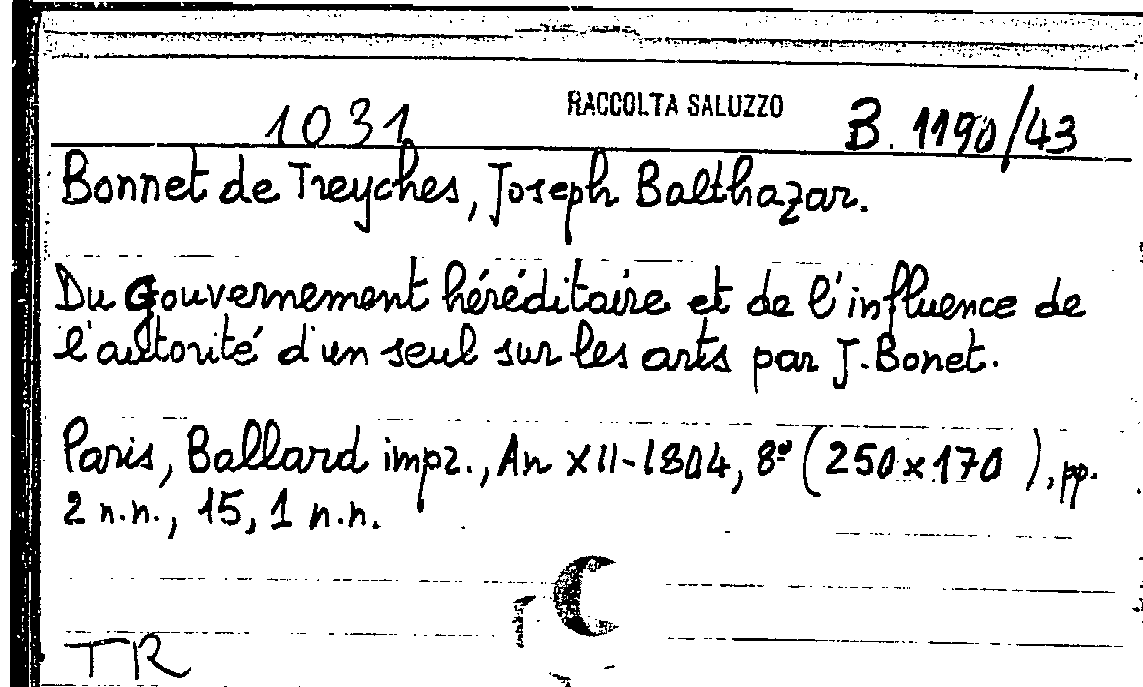 1031 RACCOLTA SALUZZO B. 1190/43
Bonnet de Treyches, Joseph Balthazar.
Du Gouvernement héréditaire et de l'influence de
l'autorité d'un seul sur les arts par J. Bonet.
Paris, Ballard impr., An XII-1804, 8° (250x170), pp.
2 n.n., 15, 1 n.n.
TR